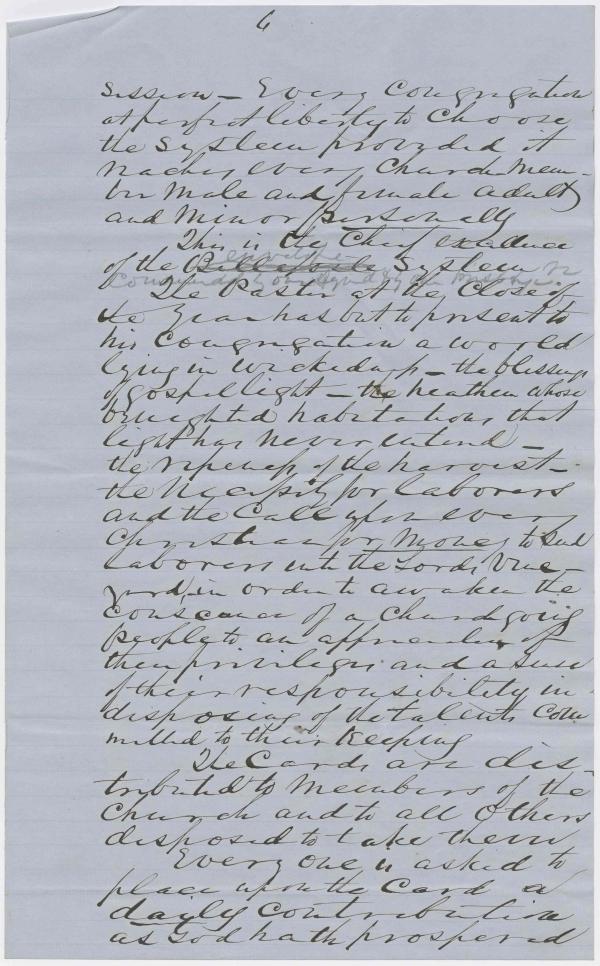 6
Session – Every Congregation
at perfect liberty to choose
the System provided it
reaches every Church Mem-
ber Male and female adult
and Minor personally
This is the Chief excellence
of the System
envelope
The Pastor at the Close of
the Year has but to present to
his Congregation a world
lying in wickedness – the blessings
of gospel light – the heathen whose
benighted habitations that
light has never entered –
the ripeness of the harvest –
the necessity for laborers
and the Call upon every
Christian for money to send
Laborers into the Lords Vine-
yard, in order to awaken the
Conscience of a Church going
people to an appreciation of
their privileges and a sense
of their responsibility in
disposing of the talents Com
mitted to their Keeping
The Cards are dis-
tributed to members of the
Church and to all Others
disposed to take them
Every one is asked to
place upon the Card a
daily Contribution
as God hath prospered